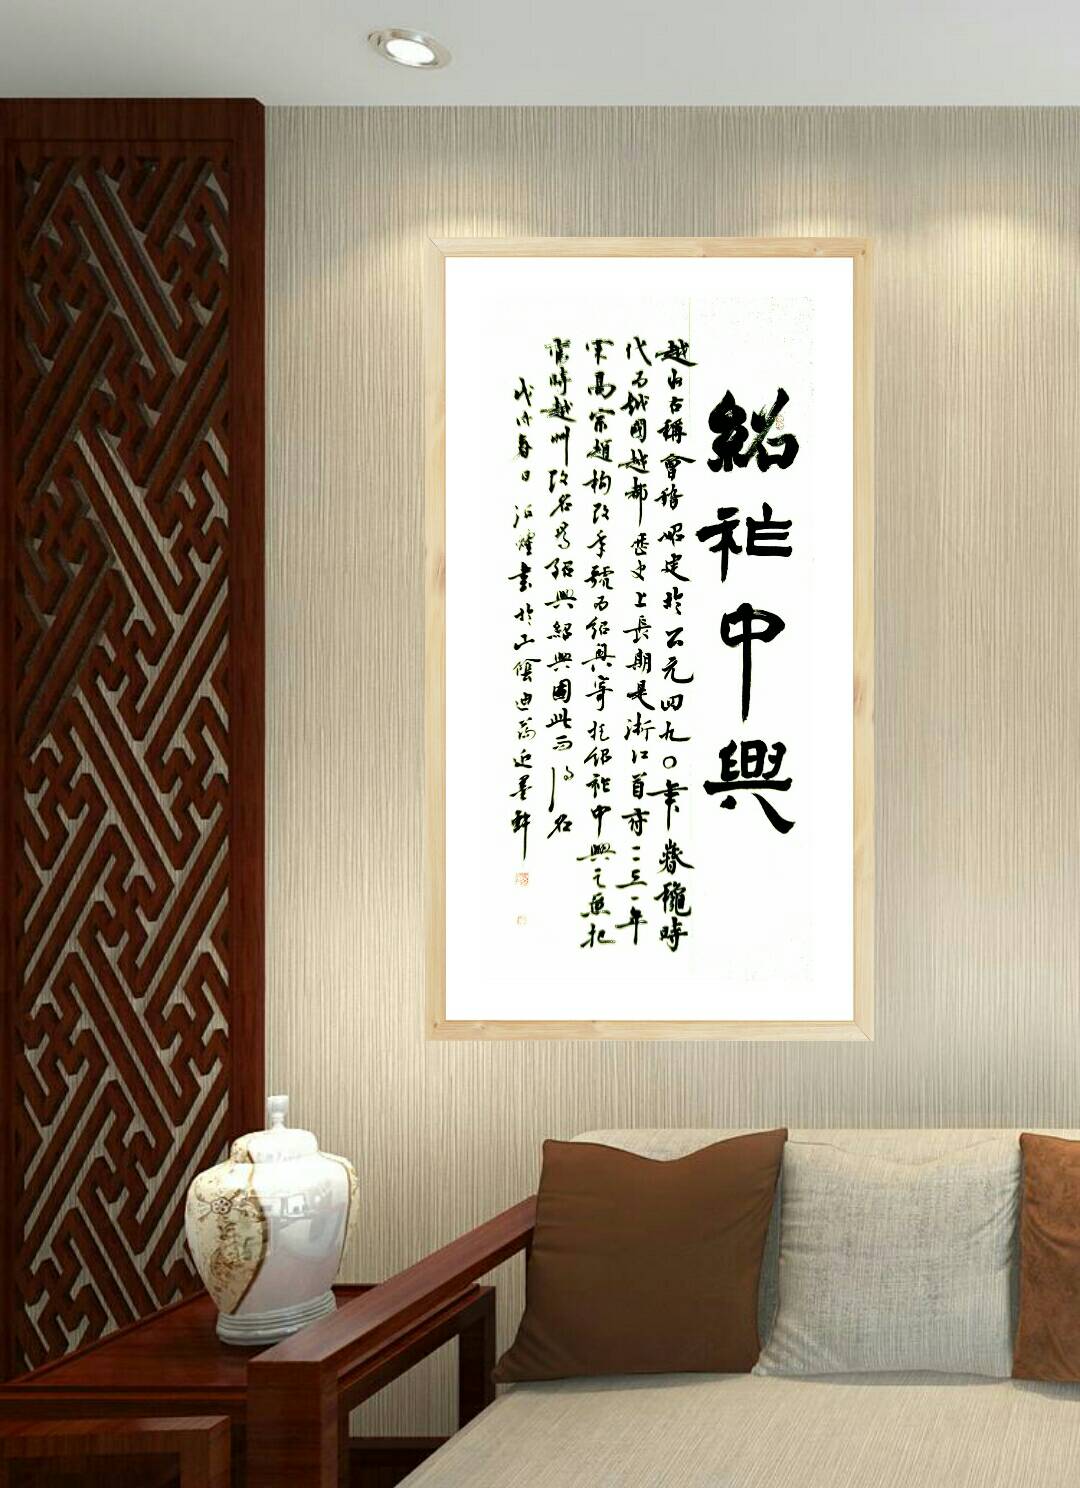 紹祚中興
越州古稱會稽始建於公元四九〇年春穐時
代为越國越都歷史上長期是浙江首府一一三一年
宋高宗趙构改年號为紹興寄托紹祚中興之意把
當時越州改名为紹興紹興因此而得名
戊戌春日書於山陰迪蕩近墨軒